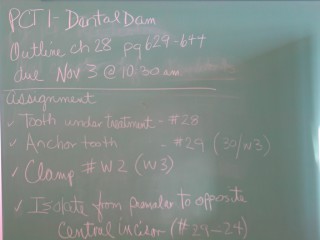 PCT 1- Dental Dam
Outline ch 28 pg 629-644
due Nov 3 @ 10:30 am
Assignment
✓ Tooth under treatment - #28
✓ Anchor tooth - #29 (30/w3)
✓ Clamp #W2 (W3)
✓ Isolate from premolar to opposite
Central incisor (#29-24)